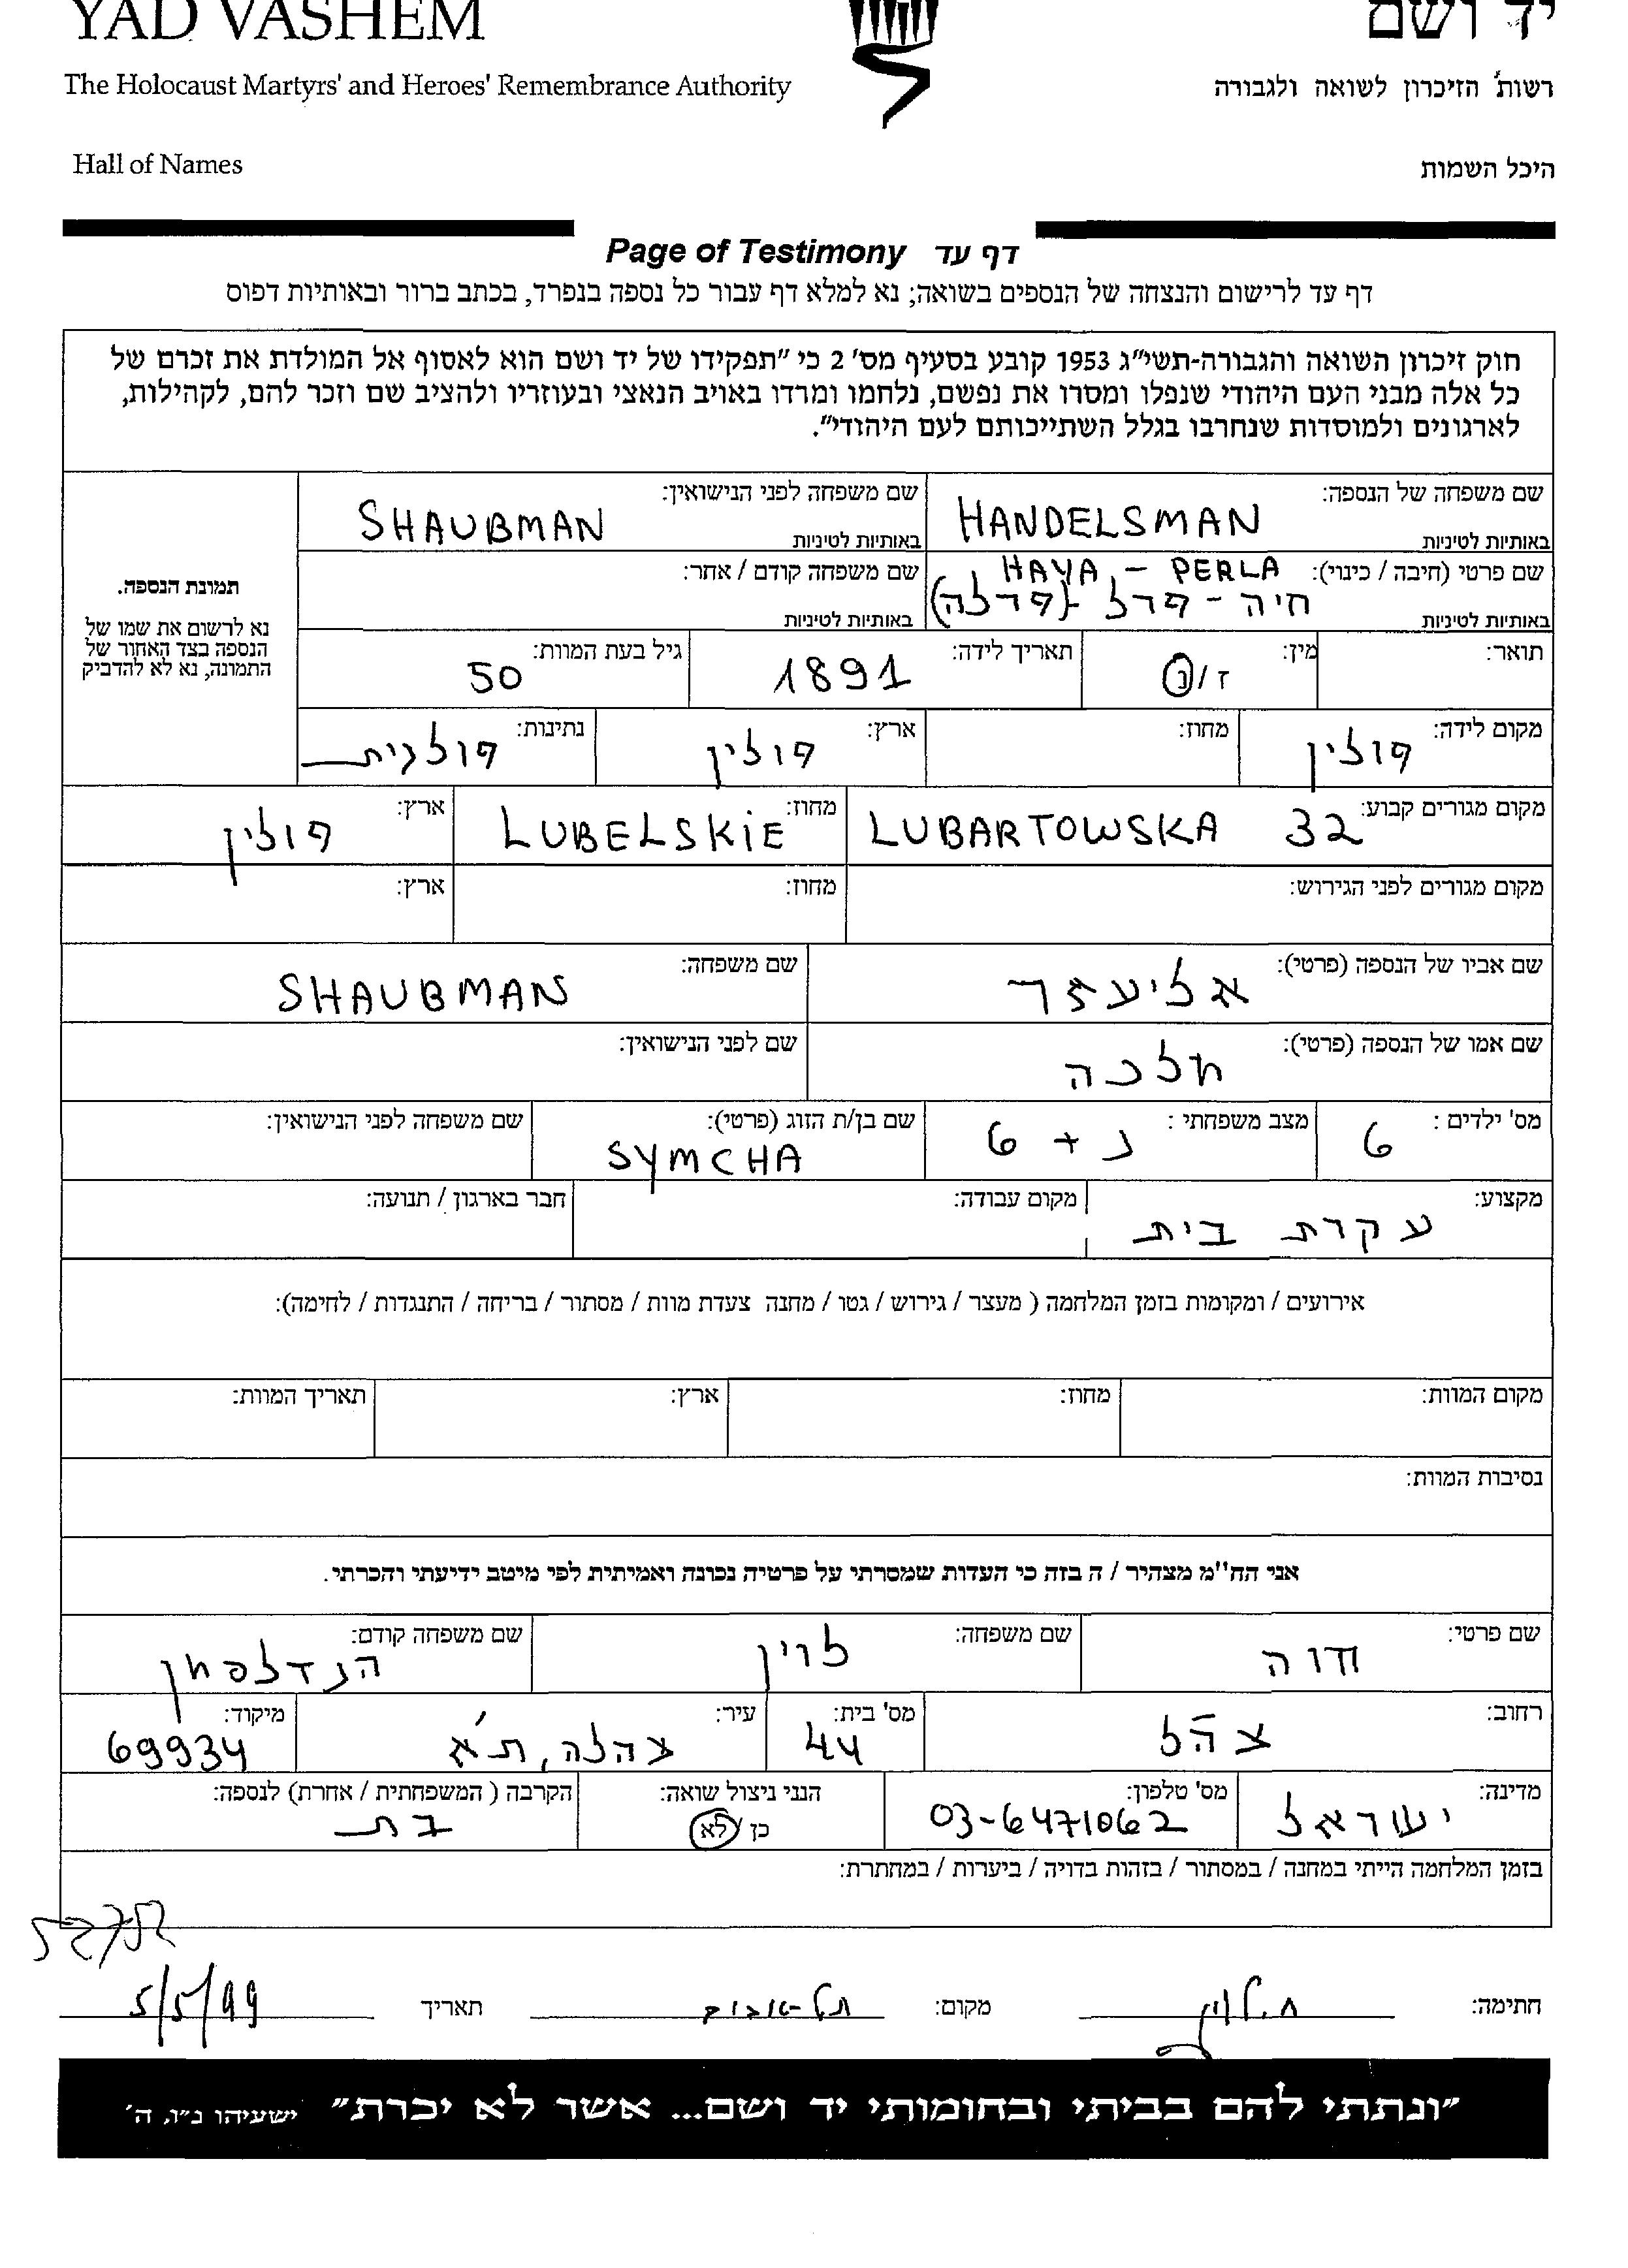 YAD VASHEM יד ושם
The Holocaust Martyrs' and Heroes' Remembrance Authority רשות הזיכרון לשואה ולגבורה
Hall of Names היכל השמות
Page of Testimony דף עד
דף עד לרישום והנצחה של הנספים בשואה; נא למלא דף עבור כל נספה בנפרד, בכתב ברור ובאותיות דפוס
חוק זיכרון השואה והגבורה-תשי"ג 1953 קובע בסעיף מס' 2 כי "תפקידו של יד ושם הוא לאסוף אל המולדת את זכרם של
כל אלה מבני העם היהודי שנפלו ומסרו את נפשם, נלחמו ומרדו באויב הנאצי ובעוזריו ולהציב שם וזכר להם, לקהילות,
לארגונים ולמוסדות שנחרבו בגלל השתייכותם לעם היהודי".
שם משפחה של הנספה: HANDELSMAN באותיות לטיניות
שם משפחה לפני הנישואין: SHAUBMAN באותיות לטיניות
תמונת הנספה.
נא לרשום את שמו של
הנספה בצד האחור של
התמונה, נא לא להדביק
שם פרטי (חיבה / כינוי): HAYA - PERLA
חיה - פרל (פרלה)
באותיות לטיניות
שם משפחה קודם / אחר: באותיות לטיניות
תואר: מין: ז/נ תאריך לידה: 1891 גיל בעת המוות: 50
מקום לידה: פולין מחוז: ארץ: פולין נתינות: פולנית
מקום מגורים קבוע: LUBARTOWSKA 32 מחוז: LUBELSKIE ארץ: פולין
מקום מגורים לפני הגירוש: מחוז: ארץ:
שם אביו של הנספה (פרטי): אליעזר שם משפחה: SHAUBMAN
שם אמו של הנספה (פרטי): מלכה שם לפני הנישואין:
מס' ילדים : 6 מצב משפחתי : נ + 6 שם בן/ת הזוג (פרטי): SYMCHA שם משפחה לפני הנישואין:
מקצוע: עקרת בית מקום עבודה: חבר בארגון / תנועה:
אירועים / ומקומות בזמן המלחמה ( מעצר / גירוש / גטו / מחנה צעדת מוות / מסתור / בריחה / התנגדות / לחימה):
מקום המוות: מחוז: ארץ: תאריך המוות:
נסיבות המוות:
אני הח"מ מצהיר / ה בזה כי העדות שמסרתי על פרטיה נכונה ואמיתית לפי מיטב ידיעתי והכרתי.
שם פרטי: חוה שם משפחה: לוין שם משפחה קודם: הנדלסמן
רחוב: צה"ל מס' בית: 44 עיר: צהלה, ת"א מיקוד: 69934
מדינה: ישראל מס' טלפון: 03-6471062 הנני ניצול שואה: כן / לא הקרבה ( המשפחתית / אחרת) לנספה: בת
בזמן המלחמה הייתי במחנה / במסתור / בזהות בדויה / ביערות / במחתרת:
חתימה: ח. לוין מקום: תל-אביב תאריך 5/5/99
"ונתתי להם בביתי ובחומותי יד ושם... אשר לא יכרת" ישעיהו נ"ו, ה'